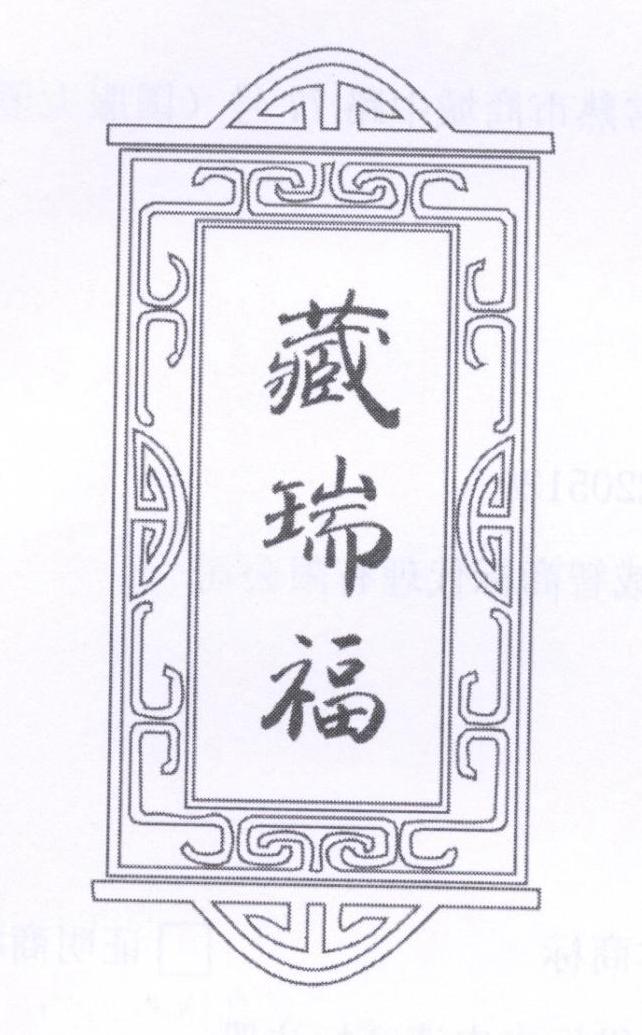 藏瑞福